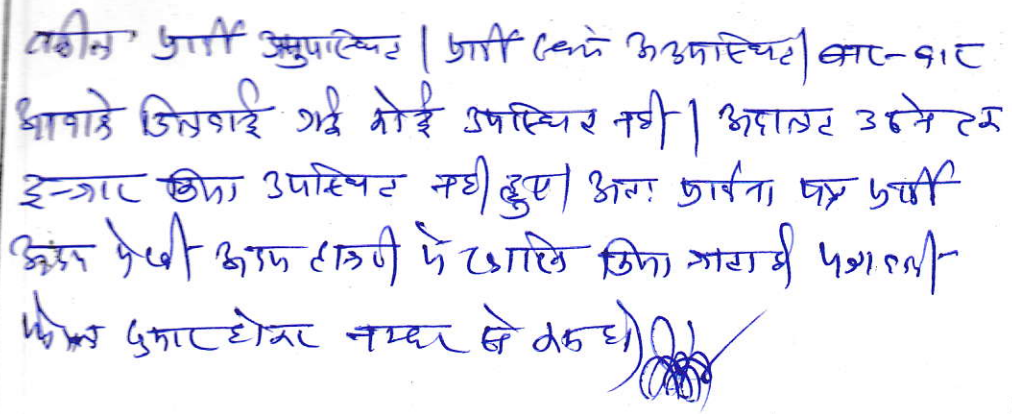 वकील प्रार्थी अनुपस्थित | प्रार्थी स्वयं अनुपस्थित | बार-बार
आवाजे दिलवाई गई कोई उपस्थित नही | अदालत उठने तक
इन्तजार किया उपस्थित नही हुए | अतः प्रार्थना पत्र प्रार्थी
अदम पेशी अदम हाजरी मे खारिज किया जाता है पत्रावली
फैसल शुमार होकर नम्बर से कम हो |